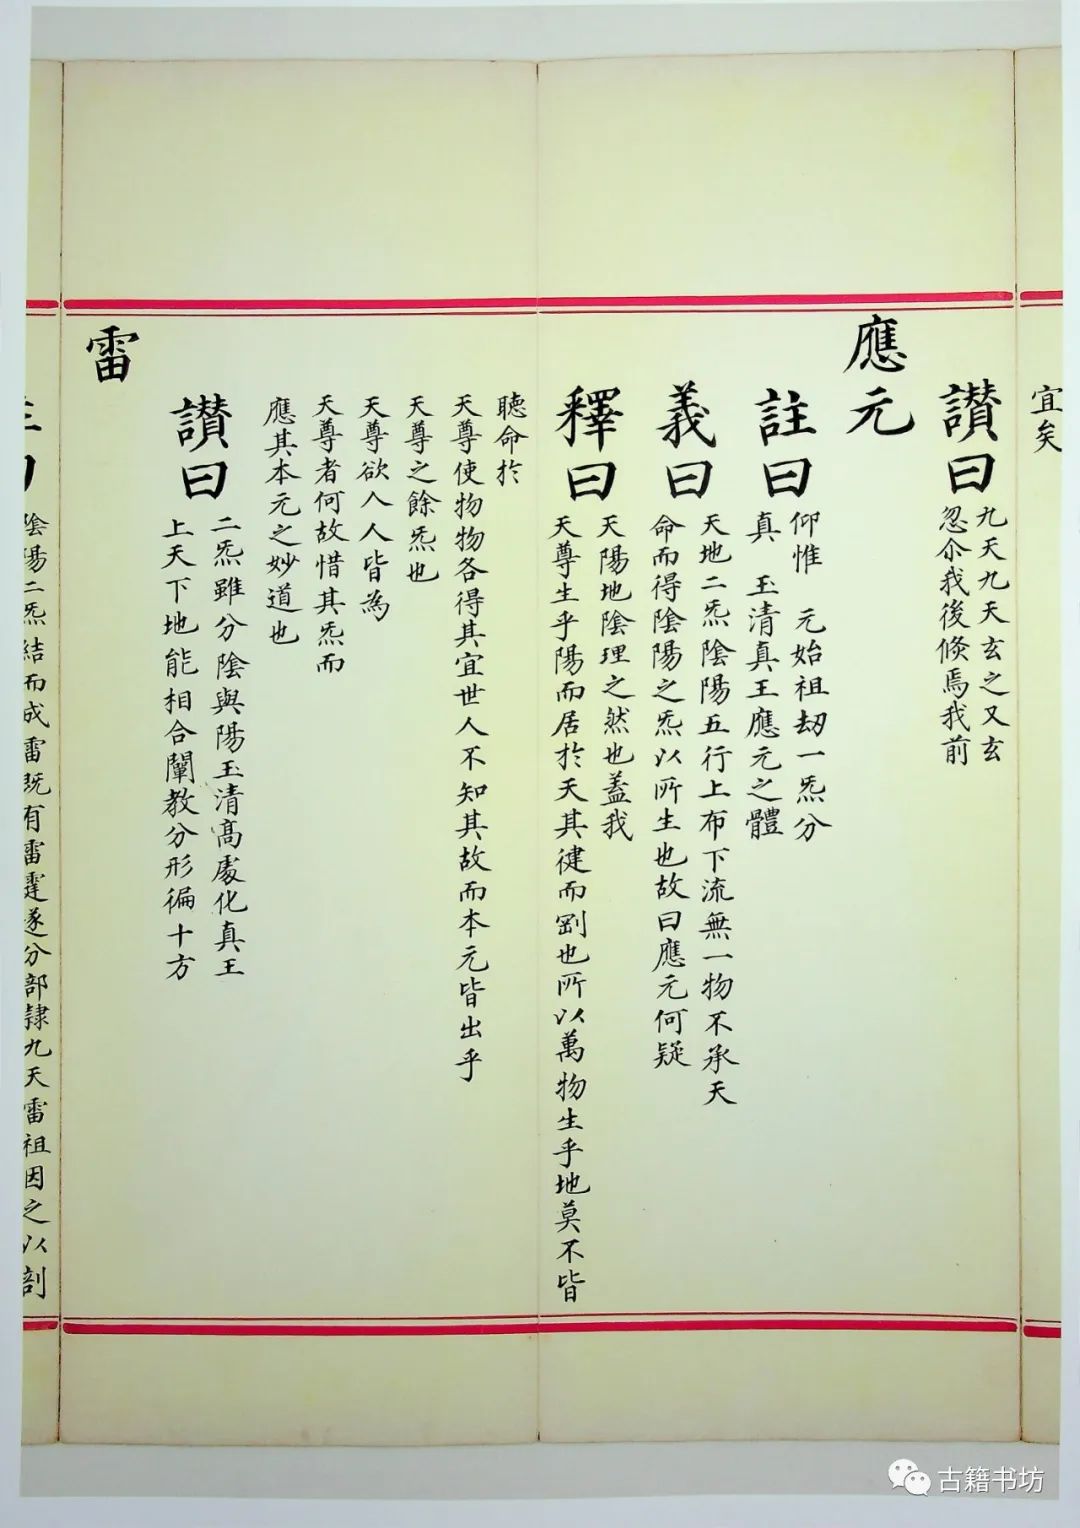 宜矣
讃曰
九天九天玄之又玄
忽尒我後倐焉我前
應元
註曰
仰惟　元始祖刼一炁分
真　玉清真王應元之體
義曰
天地二炁陰陽五行上布下流無一物不承天
命而得陰陽之炁以所生也故曰應元何疑
釋曰
天陽地陰理之然也葢我
天尊生乎陽而居於天其健而剛也所以萬物生乎地莫不皆
聽命於
天尊使物物各得其宜世人不知其故而本元皆出乎
天尊之餘炁也
天尊欲人人皆為
天尊者何故惜其炁而
應其本元之妙道也
讃曰
二炁雖分陰與陽玉清高處化真王
上天下地能相合闡教分形徧十方
雷
陰陽二炁結而成雷既有雷霆遂分部隸九天雷祖因之以剖
古籍书坊